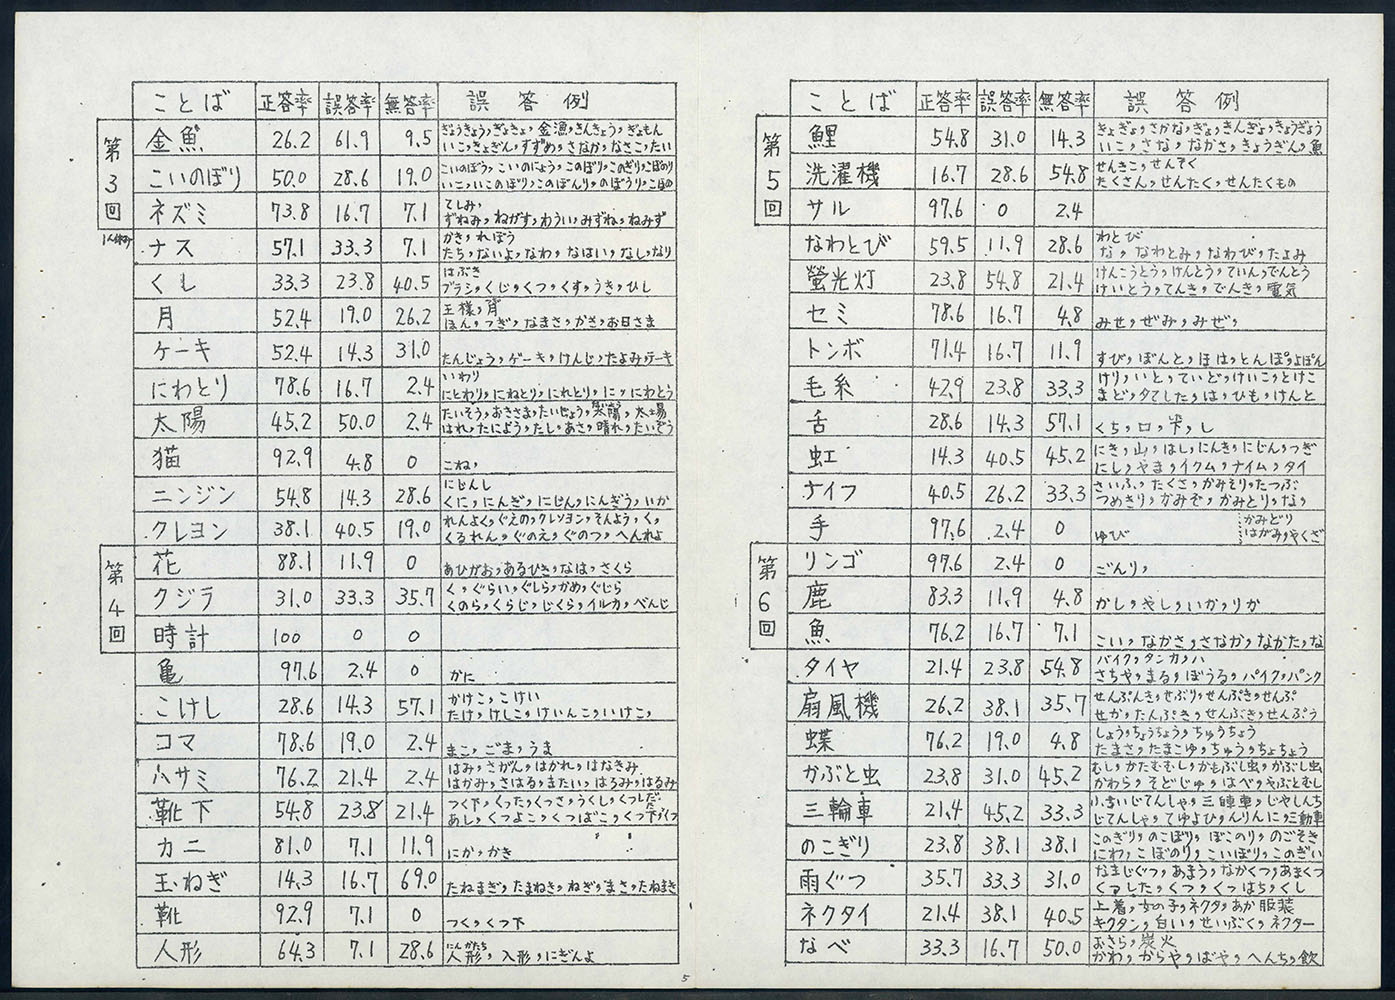 ことば 正答率 誤答率 無答率 誤答例
第3回
金魚 26.2 61.9 9.5 ぎょうきょう,ぎょきょ,金漁,きんきょう,ぎょもん
いこ,きょぎん,すずめ,さなか,なさこ,たい
こいのぼり 50.0 28.6 19.0 こいのぼう,こいのにょう,このぼり,このぎり,こぼのり
いこ,いこのぼり,このぼんり,のぼうり,こぼの
ネズミ 73.8 16.7 7.1 てしみ,
ずねみ,ねがす,わうい,みずね,ねみず
ナス 57.1 33.3 7.1 かき,れぼう
たち,ないよ,なわ,なはい,なし,なり
くし 33.3 23.8 40.5 はぶき
ブラシ,くじ,くつ,くす,うき,ひし
月 52.4 19.0 26.2 王様,背
ほん,つぎ,なまさ,かさ,お日さま
ケーキ 52.4 14.3 31.0 たんじょう,ゲーキ,けんじ,たよみ,テーキ
にわとり 78.6 16.7 2.4 いわり
にとわり,にねとり,にれとり,にッにわとう
太陽 45.2 50.0 2.4 たいそう,おきさま,たいじょう
はれ,たによう,たし,あさ,晴れ,たいぞう
猫 92.9 4.8 0 こね,
ニンジン 54.8 14.3 28.6 にじんし
くに,にんぎ,にじん,にんぎう,いか
クレヨン 38.1 40.5 19.0 れんよく,ぐえの,クレソヨン,そんよう,く,
くるれん,ぐのえ,ぐのつ,へんれよ
第4回
花 88.1 11.9 0 あひがお,あるひき,なは,さくら
クジラ 31.0 33.3 35.7 く,ぐらい,ぐしら,かめ,ぐじら
くのら,くらじ,じくら,イルカ,べんじ
時計 100 0 0
亀 97.6 2.4 0 かに
こけし 28.6 14.3 57.1 かけこ,こけい
たけ,けしこ,けいんこ,いけこ,
コマ 78.6 19.0 2.4 まこ,ごま,うま
ハサミ 76.2 21.4 2.4 はみ,さがん,はかれ,はなきみ
はかみ,さはる,またい,はろみ,はるみ
靴下 54.8 23.8 21.4 つく下,くった,くっさ,うくし,くつしだ
あし,くつよこ,くつばこ,くつ下
カニ 81.0 7.1 11.9 にか,かき
玉ねぎ 14.3 16.7 69.0 たねまぎ,たまねき,ねぎ,まさ,たねまき
靴 92.9 7.1 0 つく,くつ下
人形 64.3 7.1 28.6 にんかたち
人形,入形,にぎんよ
5
ことば 正答率 誤答率 無答率 誤答例
第5回
鯉 54.8 31.0 14.3 きょぎょ,さかな,ぎょ,きんぎょ,きょうぎょう
いこ,さな,なかさ,きょうぎん,魚
洗濯機 16.7 28.6 54.8 せんきこ,せんぞく
たくさん,せんたく,せんたくもの
サル 97.6 0 2.4
なわとび 59.5 11.9 28.6 わとび
な,なわとみ,なわび,たよみ
螢光灯 23.8 54.8 21.4 けんこうとう,けんとう,ていん,でんとう
けいとう,てんき,でんき,電気
セミ 78.6 16.7 4.8 みせ,ぜみ,みぜ,
トンボ 71.4 16.7 11.9 すび,ぼんと,ほは,とんぽ,よぽん
毛糸 42.9 23.8 33.3 けり,いと,ていど,けいこ,とけこ
まど,タてした,は,ひも,けんと
舌 28.6 14.3 57.1 くち,口,し
虹 14.3 40.5 45.2 にき,山,はし,にんき,にじん,つぎ
にし,やま,イクム,ナイム,タイ
ナイフ 40.5 26.2 33.3 さいふ,たくさ,かみそり,たつぶ
つめきり,かみぞ,かみとり,な,
かみどり
はがみ,やくざ
手 97.6 2.4 0 ゆび
第6回
リンゴ 97.6 2.4 0 ごんり,
鹿 83.3 11.9 4.8 かし,やし,いか,りか
魚 76.2 16.7 7.1 こい,なかさ,さなか,なかた,な
タイヤ 21.4 23.8 54.8 バイク,タンカ,ハ
さちや,まる,ぼうる,パイク,パンク
扇風機 26.2 38.1 35.7 せんぷんき,せぶり,せんぷき,せんぷ
せか,たんぷき,せんぶき,せんぷう
蝶 76.2 19.0 4.8 しょう,ちょうちょう,ちゅうちょう
たまさ,たまこゆ,ちゅう,ちょちょう
かぶと虫 23.8 31.0 45.2 むし,かたむむし,かもぶし虫,かぶし虫
かわら,そどじゅ,はべ,やぶとむし
三輪車 21.4 45.2 33.3 小さいじてんしゃ,三陣車,じやしんち
じてんしゃ,てゆよひ,んりんに,三動車
のこぎり 23.8 38.1 38.1 このぎり,のこぼり,ぼこのり,のごそき
にわ,こぼのり,こいぼり,このぎい
雨ぐつ 35.7 33.3 31.0 なまじぐつ,あまう,なかくつ,あまくつ
くアした,くつ,くつはち,くし
ネクタイ 21.4 38.1 40.5 上着,女の子,ネクタ,あか服装
キクタン,白い,せいぶく,ネクター
なべ 33.3 16.7 50.0 おさら,炭火
かわ,からや,ばや,へんち,飲